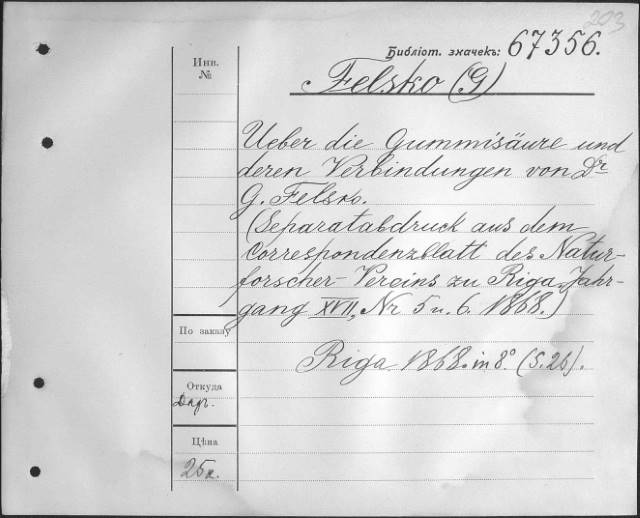 203
Библіот. значекъ: 67356.
Инв.
№
Felsko (G)
Ueber die Gummisäure und
deren Verbindungen von Dr
G. Felsko.
(Separatabdruck aus dem
Correspondenzblatt des Natur-
forscher-Vereins zu Riga, Jahr-
gang XVII, Nr 5 u. 6. 1868.)
По заказу
Riga 1868. in 8° (S. 26).
Откуда
Дар.
Цѣна
25к.